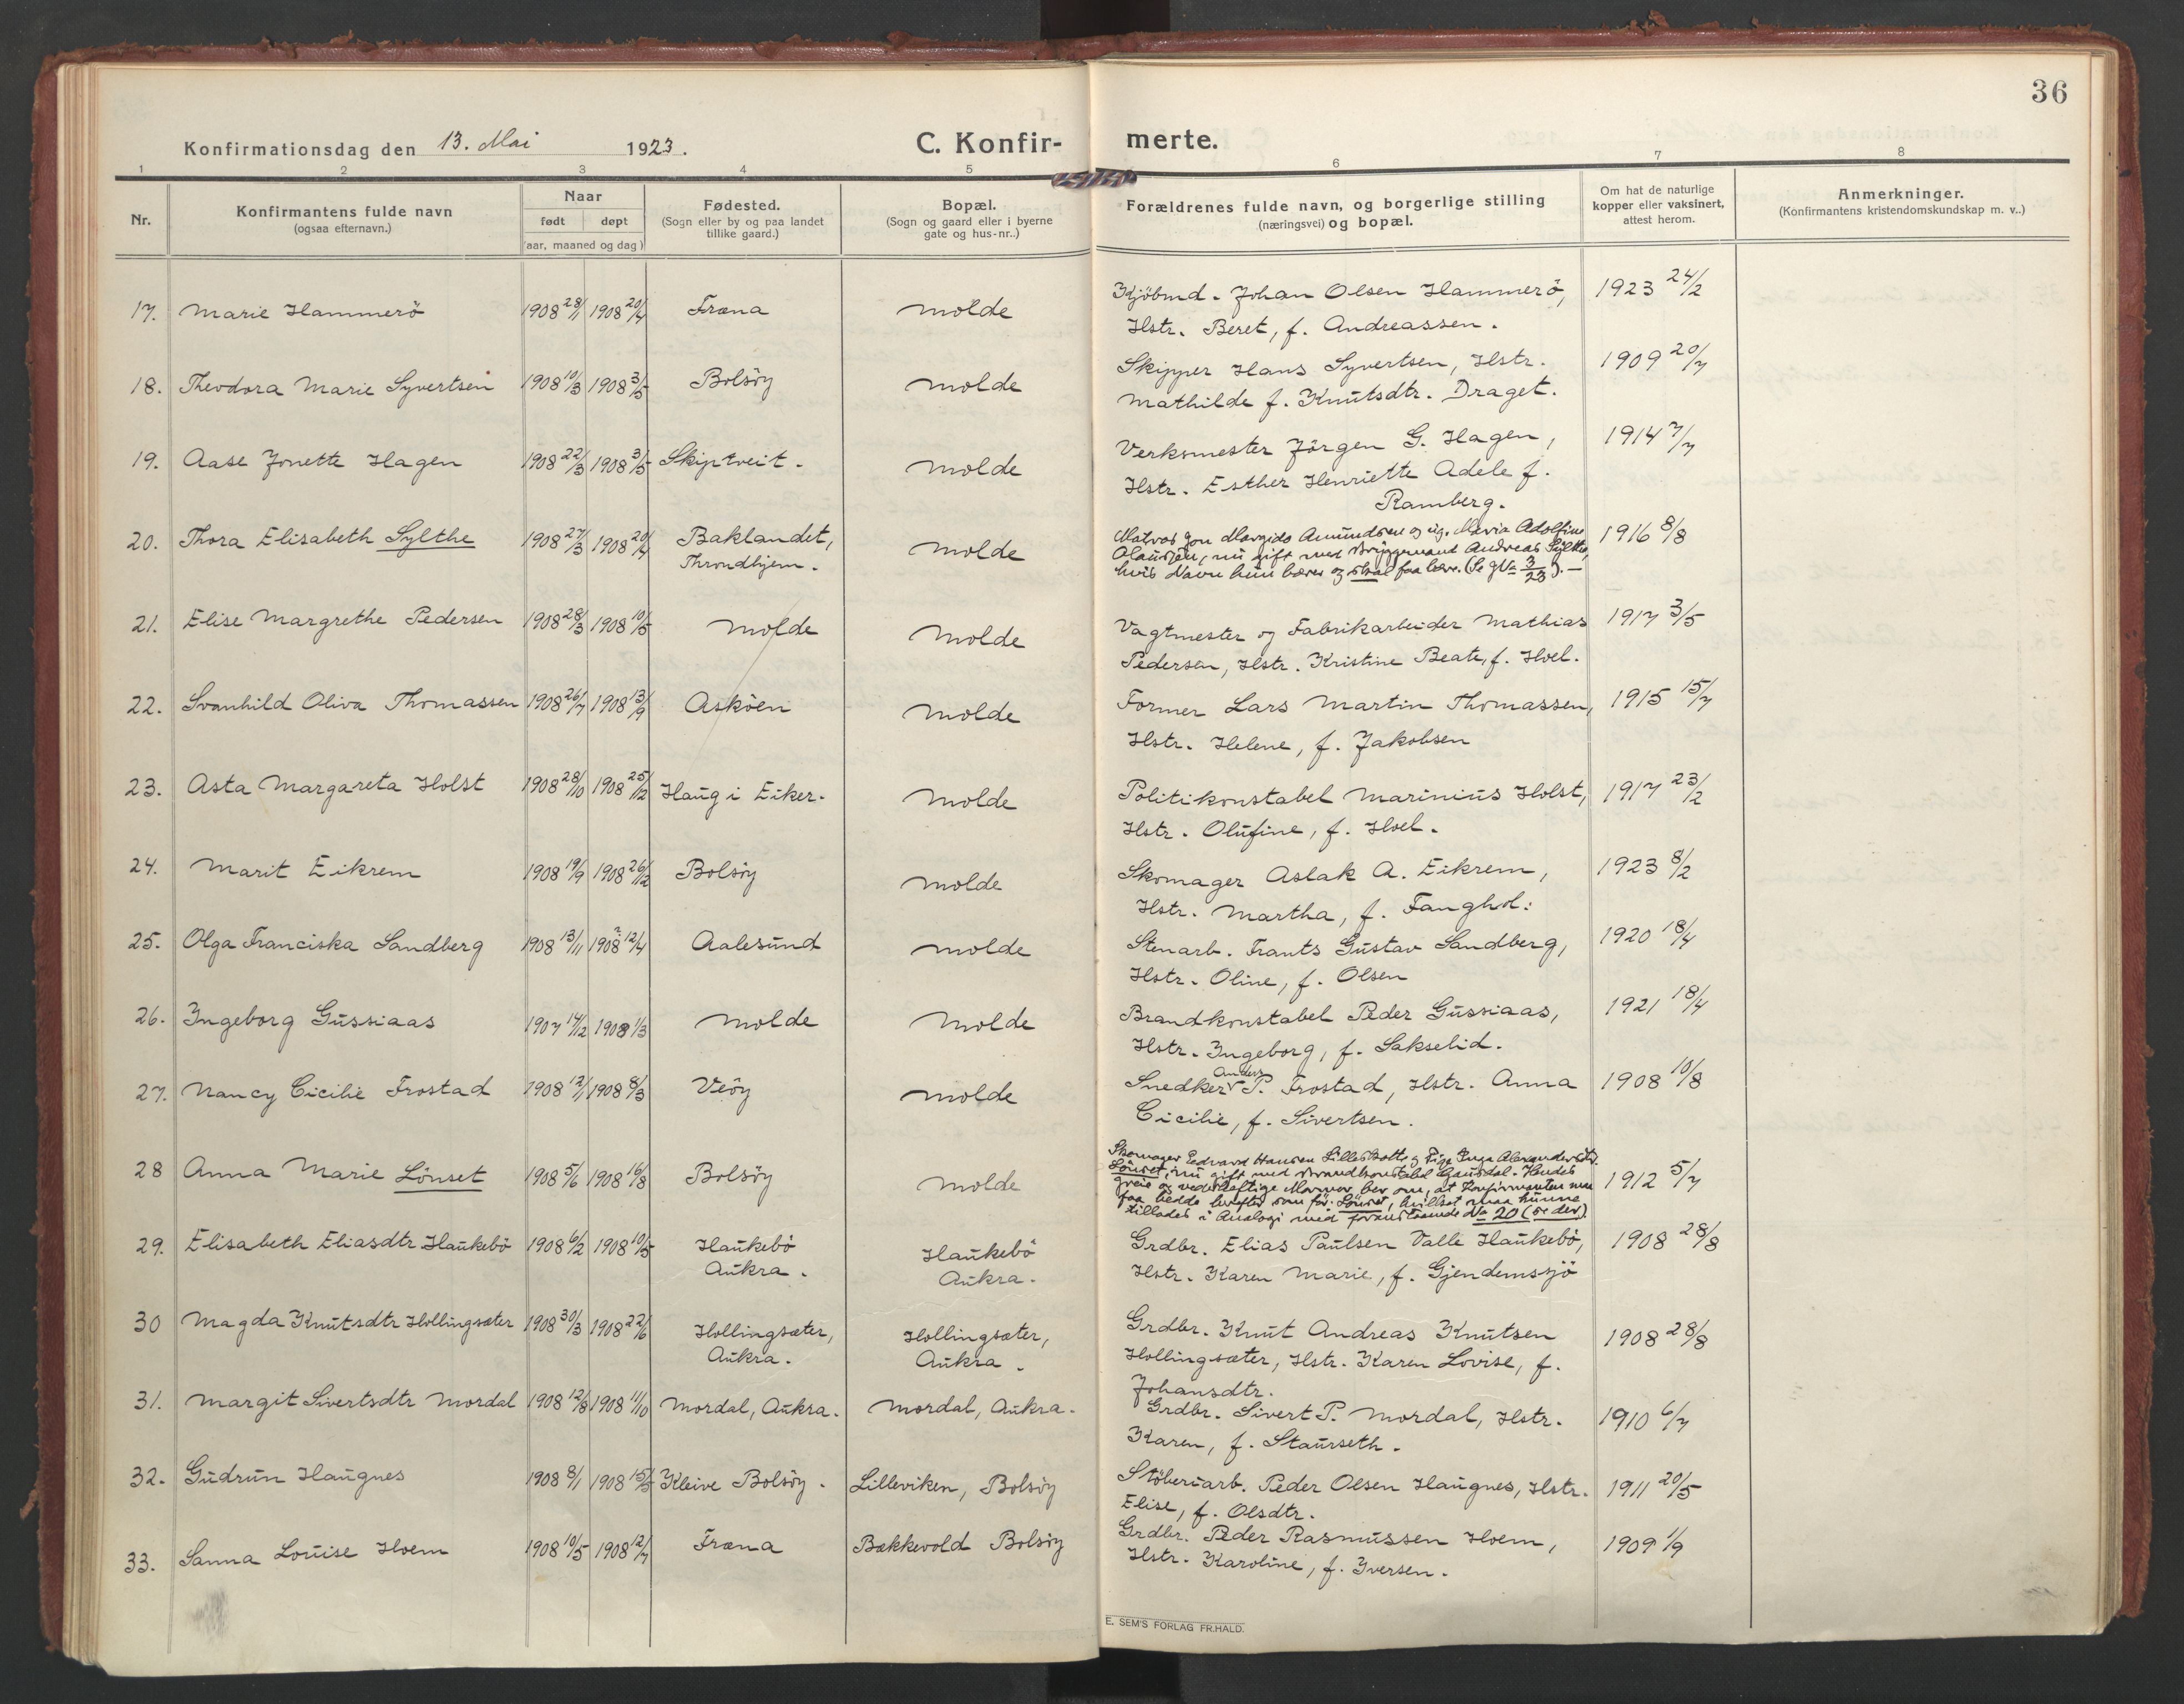 36
Konfirmationsdag den 13. Mai 1923.
C. Konfir- merte.
1 2 3 4 5 6 7 8
Nr.
Konfirmantens fulde navn
(ogsaa efternavn.)
Naar
født døpt
(aar, maaned og dag)
Fødested.
(Sogn eller by og paa landet
tillike gaard.)
Bopæl.
(Sogn og gaard eller i byerne
gate og hus-nr..)
Forældrenes fulde navn, og borgerlige stilling
(næringsvei) og bopæl.
Om hat de naturlige
kopper eller vaksinert,
attest herom.
Anmerkninger.
(Konfirmantens kristendomskundskap m. v..)
17. Marie Hammerö 1908 28/1 1908 20/4 Fræna Molde Kjöbmd. Johan Olsen Hammerö, 1923 24/2
Hstr. Beret, f. Andreassen.
18. Theodora Marie Syvertsen 1908 10/3 1908 3/5 Bolsöy Molde Skipper Hans Syvertsen, Hstr. 1909 20/7
Mathilde f. Knutsdtr. Draget.
19. Aase Jonette Hagen 1908 22/3 1908 3/5 Skiptveit. Molde Verksmester Jörgen G. Hagen, 1914 7/7
Hstr. Esther Henriette Adele f.
Ramberg.
20. Thora Elisabeth Sylthe 1908 27/3 1908 20/4 Baklandet, Throndhjem. Molde Matros Jon Margido Amundsen og ug. Maria Adolfine 1916 8/8
Olausen, nu gift med Bryggemand Andreas Sylthe,
hvis Navn hun bærer og skal faa bære. (Se gNo 3/23). —
21. Elise Margrethe Pedersen 1908 28/3 1908 10/5 Molde Molde Vagtmester og Fabrikarbeider Mathias 1917 3/5
Pedersen, Hstr. Kristine Beate, f. Hoel.
22. Svanhild Oliva Thomassen 1908 26/7 1908 13/9 Asköen Molde Former Lars Martin Thomassen, 1915 15/7
Hstr. Helene, f. Jakobsen
23. Asta Margareta Holst 1908 28/10 1908 25/12 Haug i Eiker. Molde Politikonstabel Marinius Holst, 1917 23/2
Hstr. Olufine, f. Hoel.
24. Marit Eikrem 1908 19/9 1908 26/12 Bolsöy Molde Skomager Aslak A. Eikrem, 1923 8/2
Hstr. Martha, f. Fanghol:
25. Olga Franciska Sandberg 1908 13/11 1908 ? 12/4 Aalesund Molde Stenarb. Frants Gustav Sandberg, 1920 18/4
Hstr. Oline, f. Olsen
26. Ingeborg Gussiaas 1907 14/12 1908 1/3 Molde Molde Brandkonstabel Peder Gussiaas, 1921 18/4
Hstr. Ingeborg, f. Sakselid.
27. Nancy Cicilie Frostad 1908 12/1 1908 8/3 Veöy Molde Snedker Anders P. Frostad, Hstr. Anna 1908 10/8
Cicilie, f. Sivertsen.
28 Anna Marie Lönset 1908 5/6 1908 16/8 Bolsöy Molde Skomager Edvard Hansen Lillebostt og Pige Inga Alexandersdtr. 1912 5/7
Lönset, nu gift med Brandkonstabel Gausdal. Hendes
greie og vederhæftige Mormor ber om, at Konfirmanten maa
faa hedde herefter som för: Lönset, hvilket maa kunne
tillades i Analogi med foranstaaende No 20 (se der).
29. Elisabeth Eliasdtr Haukebö 1908 6/2 1908 10/5 Haukebö Aukra. Haukebö Aukra. Grdbr. Elias Paulsen Valle Haukebö, 1908 28/8
Hstr. Karen Marie, f. Gjendemsjö
30 Magda Knutsdtr Hollingsæter 1908 30/3 1908 22/6 Hollingsæter, Aukra. Hollingsæter, Aukra. Grdbr. Knut Andreas Knutsen 1908 28/8
Hollingsæter, Hstr. Karen Lovise, f.
Johansdtr.
31. Margit Sivertsdtr Mordal 1908 12/8 1908 11/10 Mordal, Aukra. Mordal, Aukra. Grdbr. Sivert P. Mordal, Hstr. 1910 6/7
Karen, f. Staurseth.
32. Gudrun Haugnes 1908 8/1 1908 15/3 Kleive Bolsöy. Lilleviken, Bolsöy Stöberiarb. Peder Olsen Haugnes, Hstr. 1911 20/5
Elise, f. Olsdtr.
33. Sanna Louise Hoem 1908 10/5 1908 12/7 Fræna Bækkevold Bolsöy Grdbr. Peder Rasmussen Hoem, 1909 1/9
Hstr. Karoline, f. Iversen.
E. SEM'S FORLAG FR.HALD.